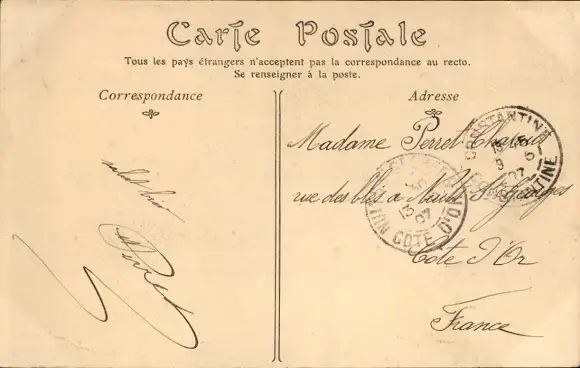 Carte Postale
Tous les pays étrangers n'acceptent pas la correspondance au recto.
Se renseigner à la poste.
Correspondance
Adresse
Perret
Madame Perret
rue des
à Nuits St Georges
Côte d'Or
France
CONSTANTINE
3 5
07
CONSTANTINE
13
07
COTE D'OR